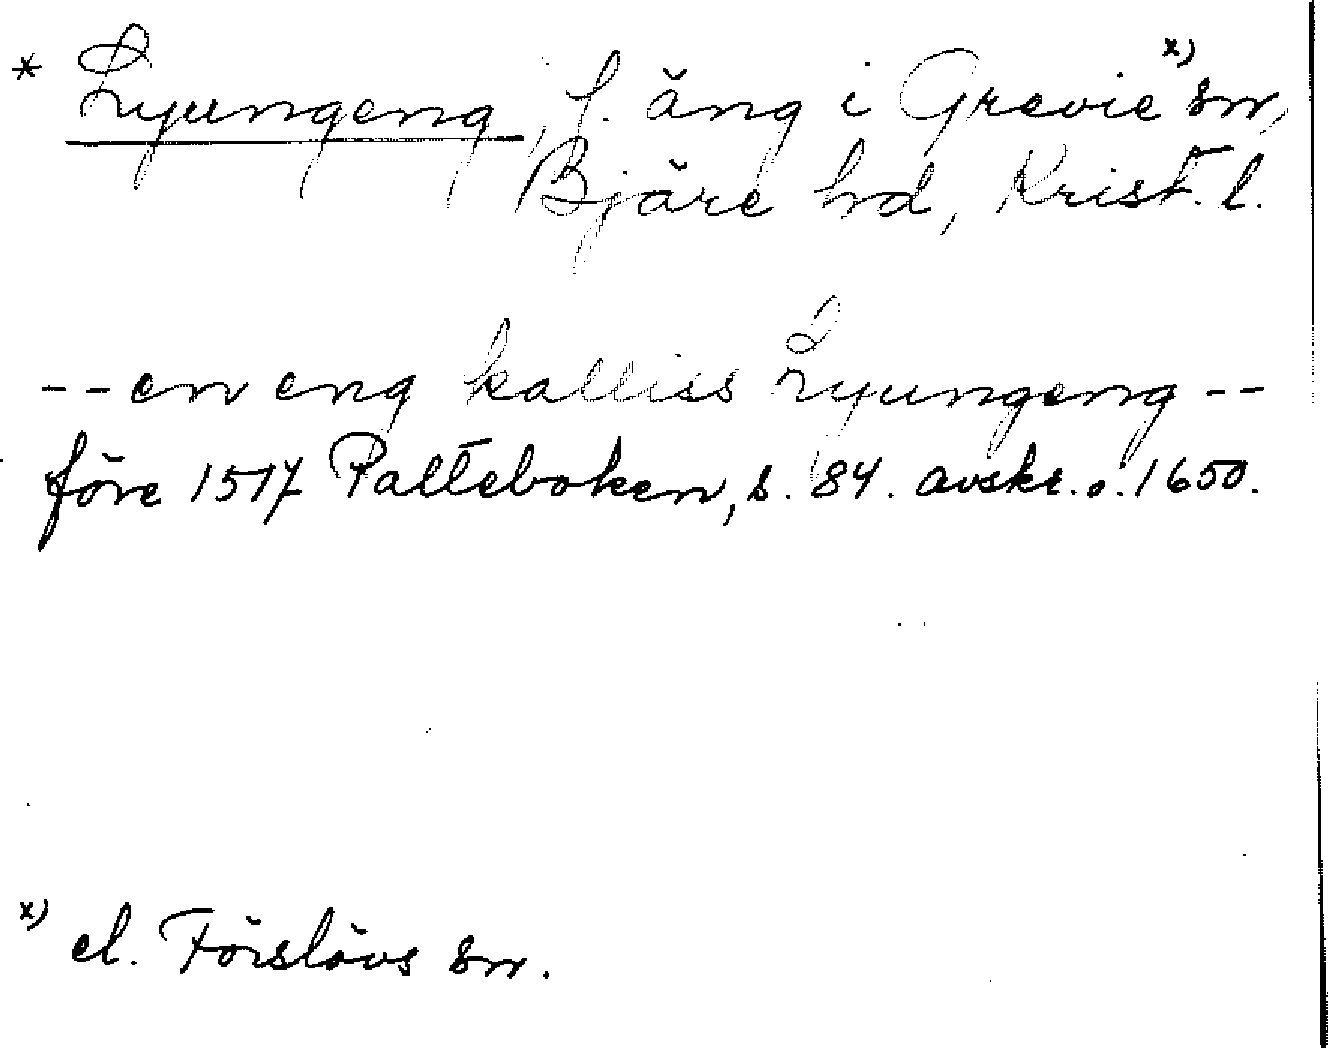 * Lyungeng, f. äng i Grevie x) sn,
Bjäre hd, Krist. l.
-- en eng kalliss Lyungeng --
före 1517 Palteboken, s. 84. avskr. o. 1650.
x) el. Förslövs sn.